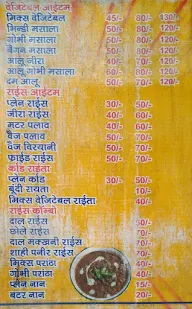 वेजिटेबल आईटम
मिक्स वेजिटेबल 45/- 80/- 130/-
भिन्डी मसाला 50/- 80/- 120/-
गोभी मसाला 50/- 80/- 120/-
बैंगन मसाला 50/- 80/- 120/-
आलू जीरा 40/- 60/- 120/-
आलू गोभी मसाला 60/- 80/- 120/-
दम आलू 50/- 80/- 120/-
राईस आईटम
प्लेन राईस 30/- 50/-
जीरा राईस 40/- 60/-
मटर पलाव 40/- 60/-
वैज पलाव 50/- 70/-
वैज बिरयानी 50/- 70/-
फ्राईड राईस 50/- 70/-
कोर्ड राईता
प्लेन कोर्ड 30/- 50/-
बूंदी रायता 10/-
मिक्स वेजिटेबल राईता 40/-
राईस कोम्बो
दाल राईस 50/-
छोले राईस 70/-
दाल मक्खनी राईस 70/-
शाही पनीर राईस 70/-
मिक्स परांठा 40/-
गोभी परांठा 40/-
प्लेन नान 15/-
बटर नान 20/-